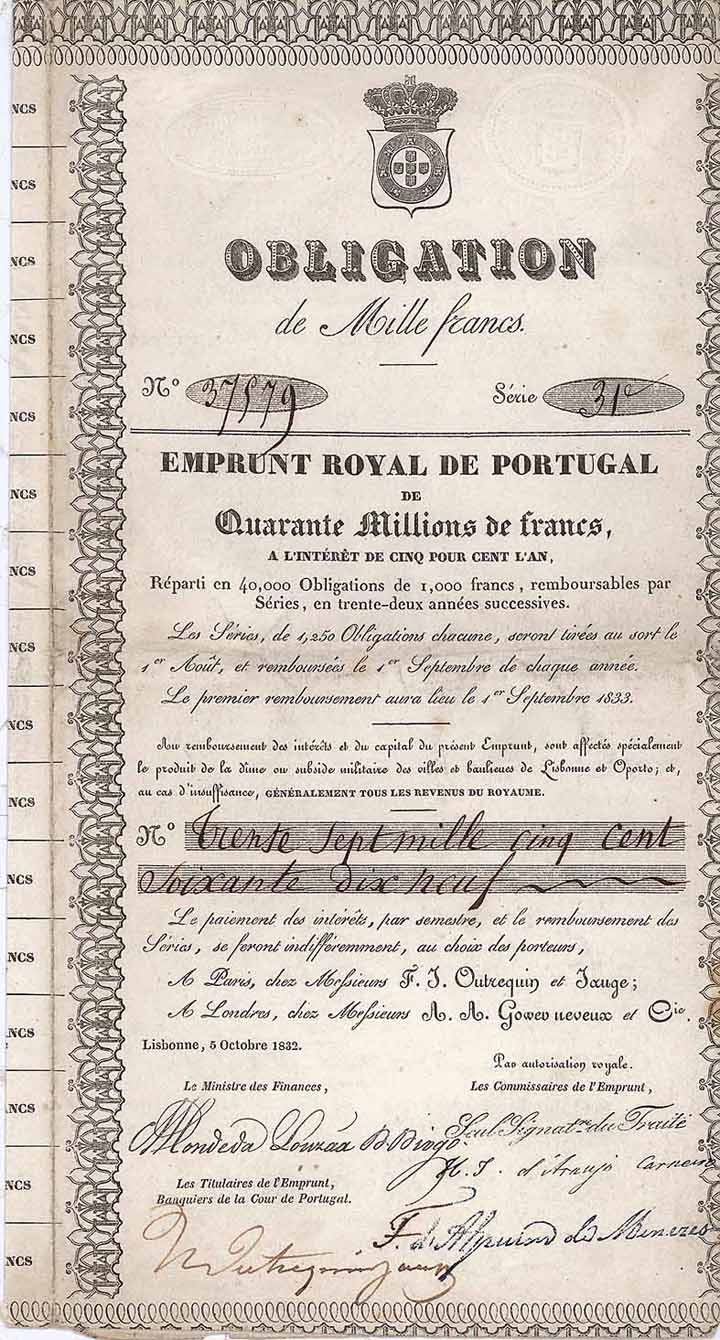 OBLIGATION
de Mille francs.
N° 37579 Série 31e
EMPRUNT ROYAL DE PORTUGAL
DE
Quarante Millions de francs,
A L'INTÉRÊT DE CINQ POUR CENT L'AN,
Réparti en 40,000 Obligations de 1,000 francs, remboursables par
Séries, en trente-deux années successives.
Les Séries, de 1,250 Obligations chacune, seront tirées au sort le
1er Août, et remboursées le 1er Septembre de chaque année.
Le premier remboursement aura lieu le 1er Septembre 1833.
Au remboursement des intérêts et du capital du présent Emprunt, sont affectés spécialement
le produit de la dîme ou subside militaire des villes et banlieues de Lisbonne et Oporto; et,
au cas d'insuffisance, GÉNÉRALEMENT TOUS LES REVENUS DU ROYAUME.
N° Trente Sept mille cinq cent
Soixante dix neuf
Le paiement des intérêts, par semestre, et le remboursement des
Séries, se feront indifféremment, au choix des porteurs,
A Paris, chez Messieurs F. J. Outrequin et Jauge;
A Londres, chez Messieurs A. A. Gower neveux et Cie.
Lisbonne, 5 Octobre 1832.
Par autorisation royale.
Le Ministre des Finances,
Les Commissaires de l'Emprunt,
Seul Signatre du Traité
H. J. d'Araujo Carneiro
Les Titulaires de l'Emprunt,
Banquiers de la Cour de Portugal.
F. d'Alpuim de Menezes
NCS
NCS
NCS
NCS
NCS
NCS
NCS
NCS
NCS
NCS
NCS
NCS
NCS
NCS
NCS
NCS